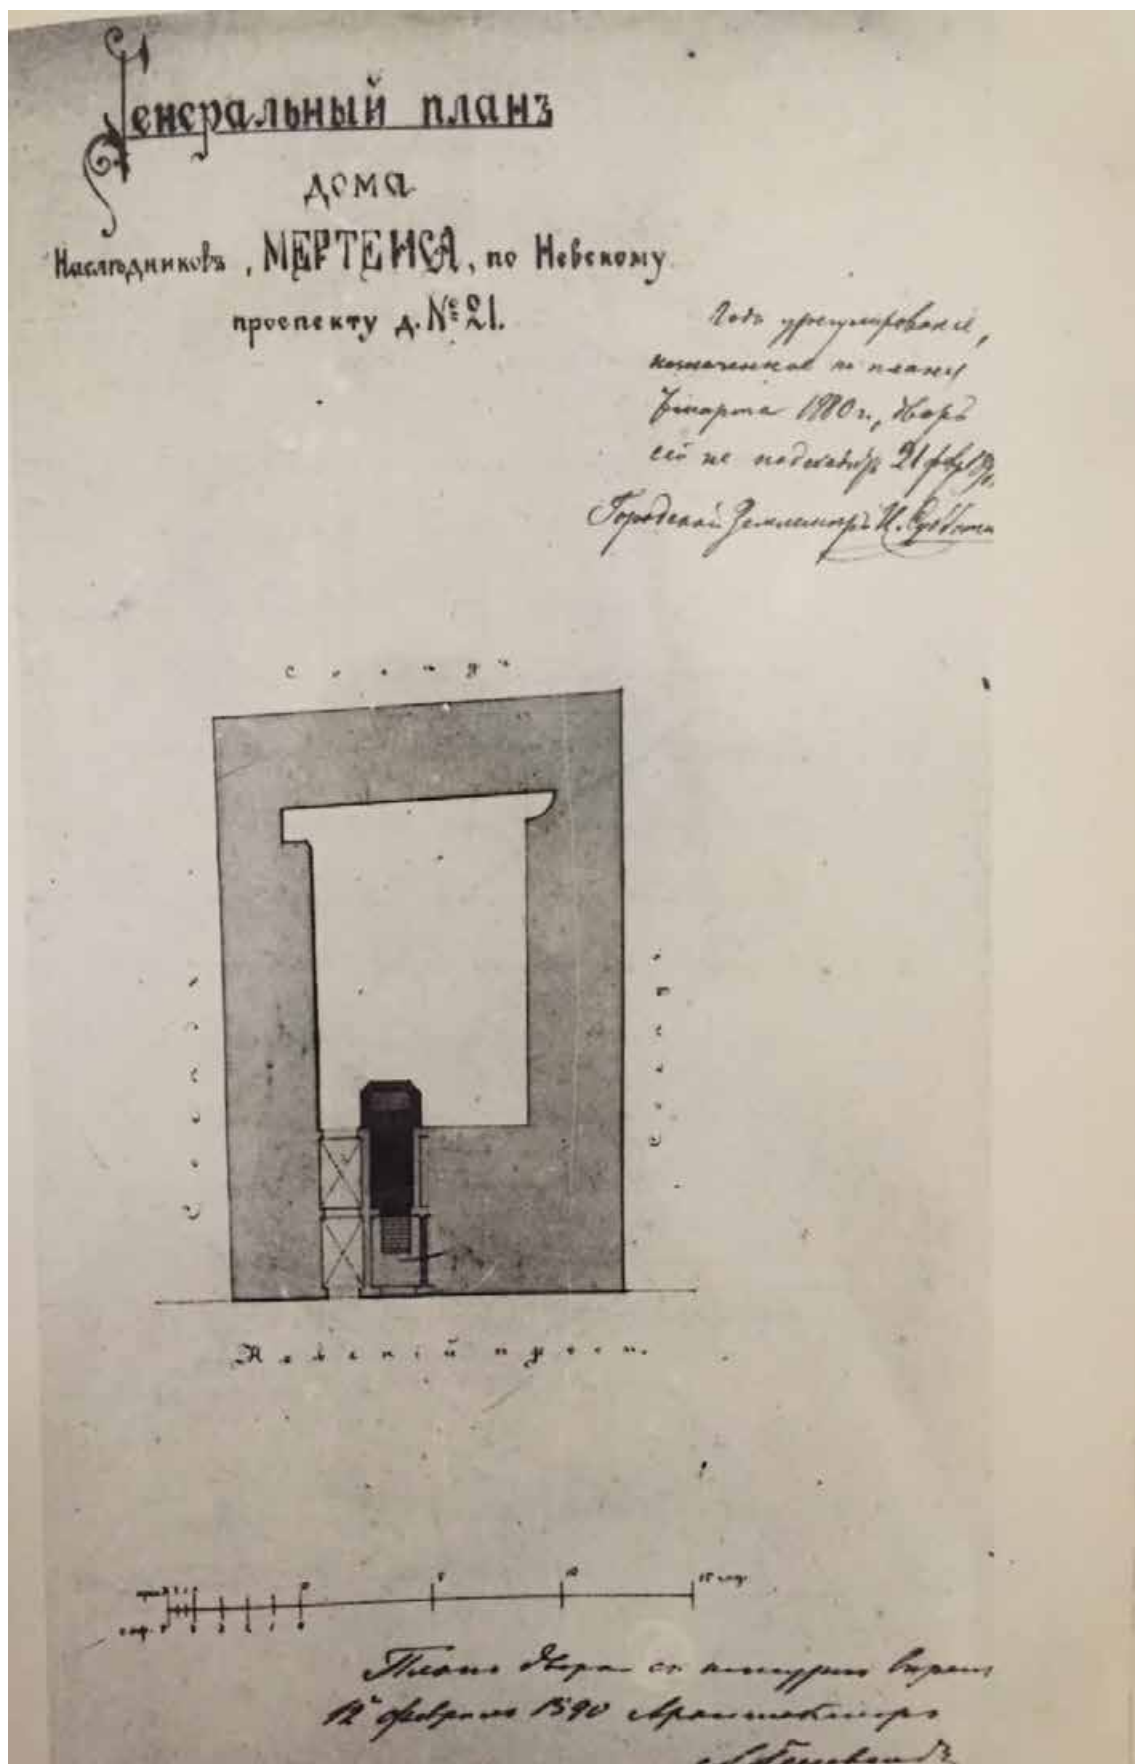 Генеральный планъ
дома
Наслѣдниковъ „МЕРТЕНСА„ по Невскому
проспекту д. № 21.
Подъ урегулированіе,
назначенное по плану
7 марта 1880 г., дворъ
сей не подходитъ 21 фвр
Городской Землемѣръ И.
Сосѣдъ
Сосѣдъ
Сосѣдъ
Невскій просп.
0 5 10 15 саж.
саж. 5 4 3 2 1 0
Планъ двора съ натурою вѣренъ
12 февраля 1890 Архитекторъ